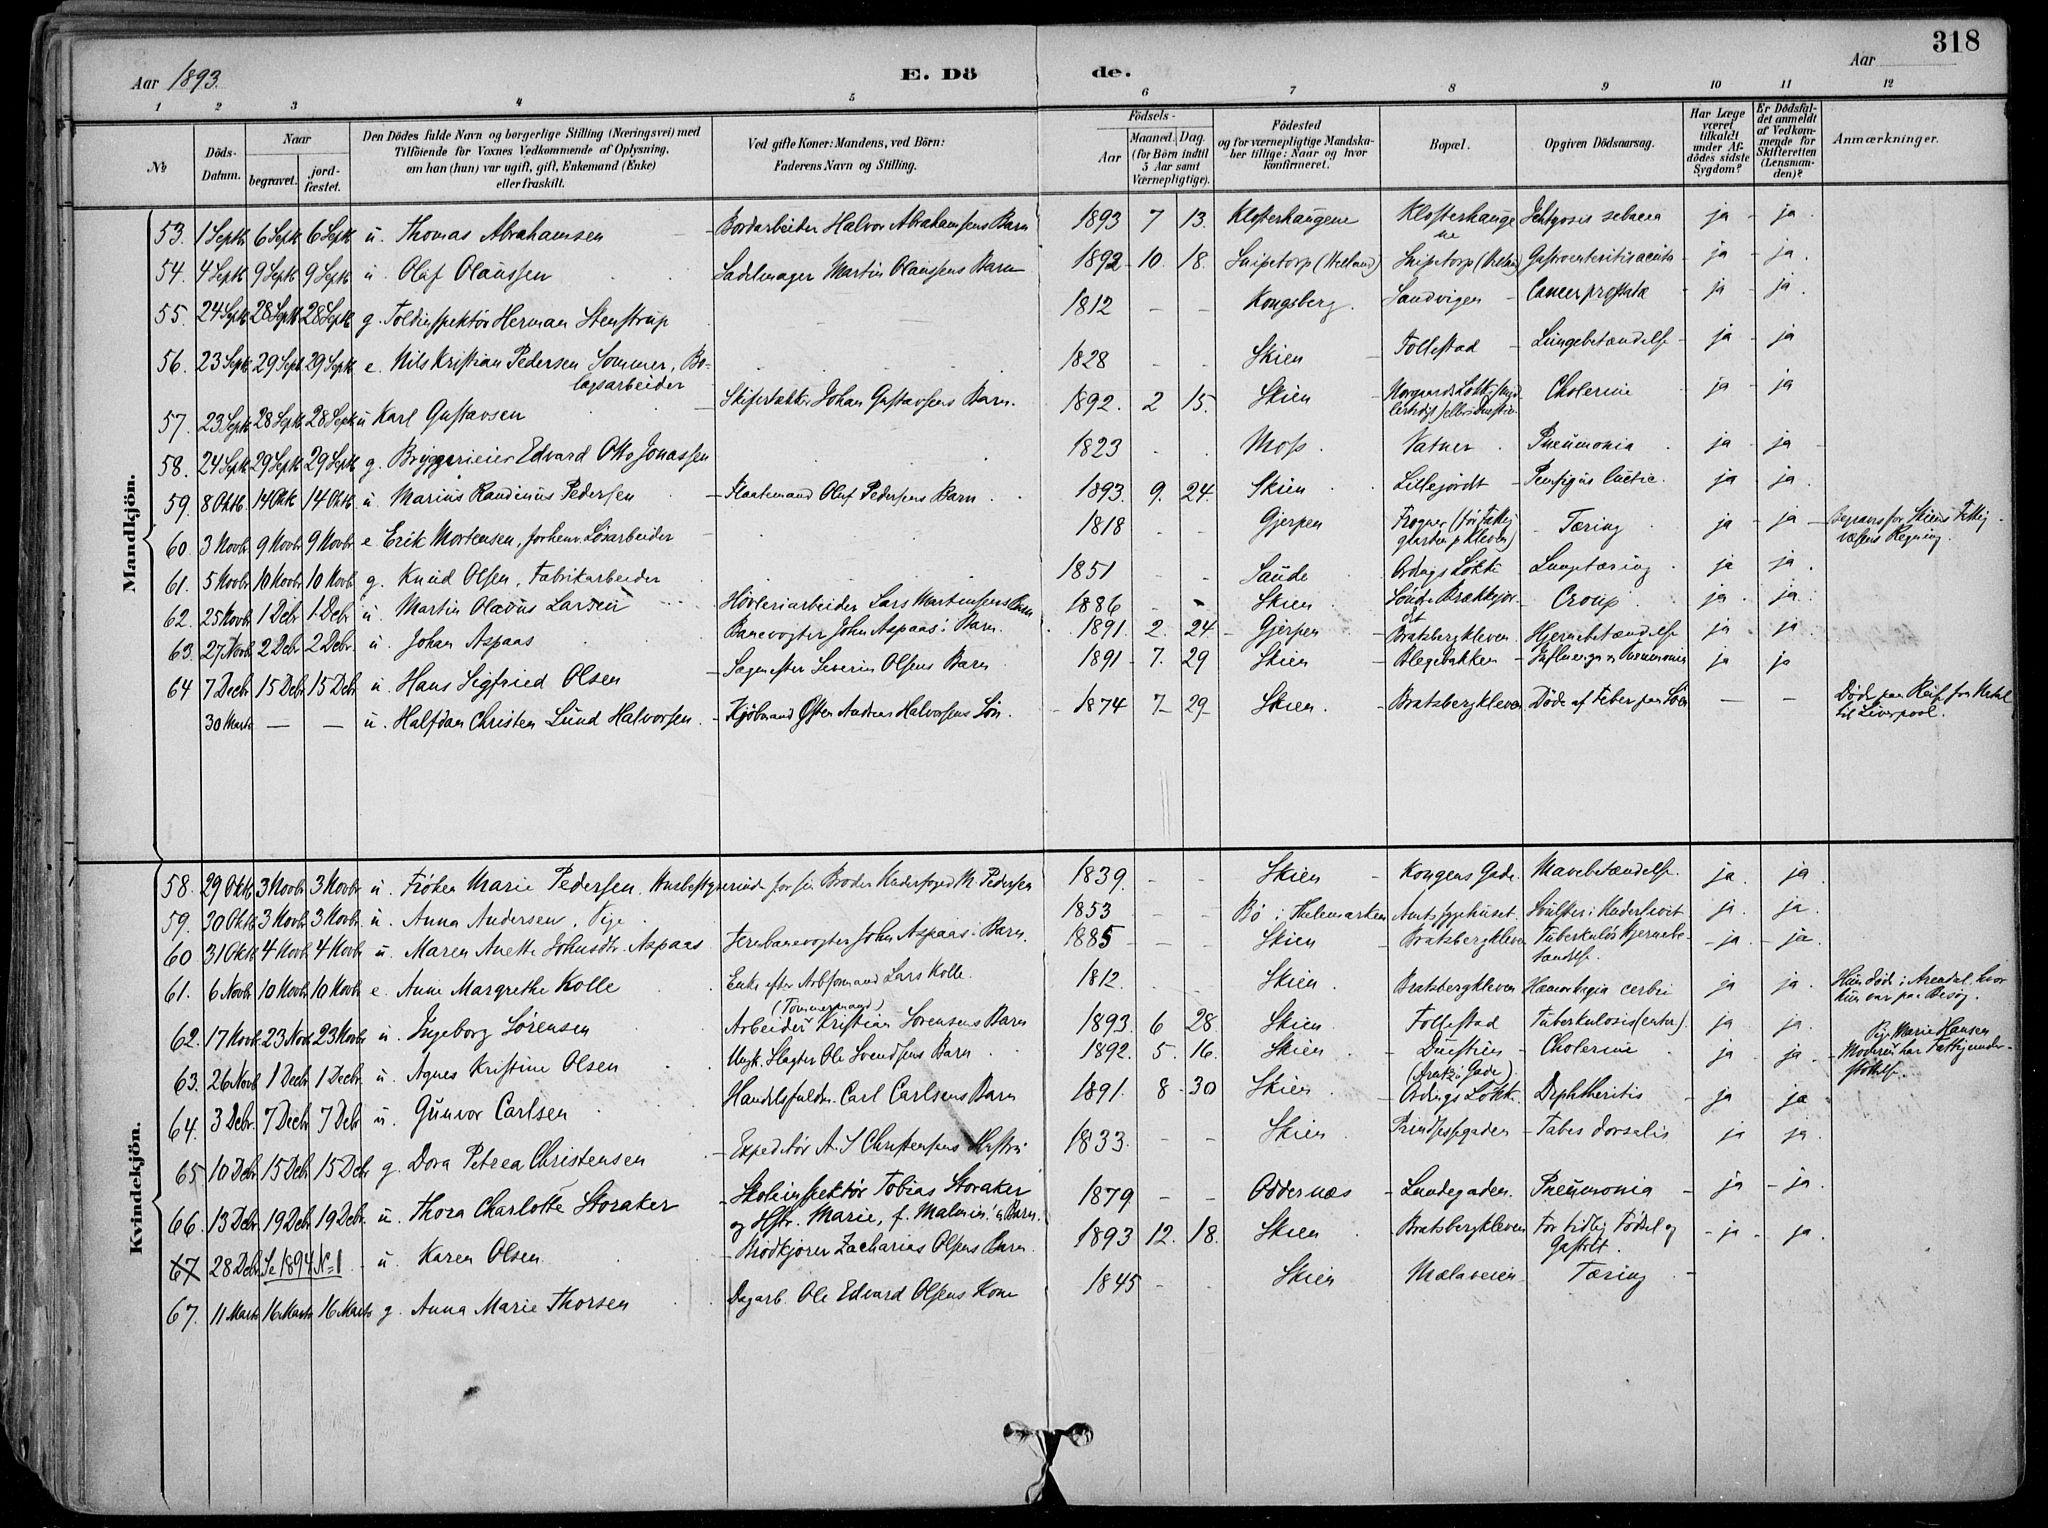 318
Aar 1893.
E. Dö de.
Aar
1 2 3 4 5 6 7 8 9 10 11 12
No
Döds-Datum.
Naar begravet. jordfæstet.
Den Dödes fulde Navn og borgerlige Stilling (Næringsvei) med Tilföiende for Voxnes Vedkommende af Oplysning, om han (hun) var ugift, gift, Enkemand (Enke) eller fraskilt.
Ved gifte Koner: Mandens, ved Börn: Faderens Navn og Stilling.
Födsels- Aar Maaned. Dag. (for Börn indtil 5 Aar samt Værnepligtige).
Födested og for værnepligtige Mandskaber tillige: Naar og hvor konfirmeret.
Bopæl.
Opgiven Dödsaarsag.
Har Læge været tilkaldt under Afdödes sidste Sygdom?
Er Dödsfaldet anmeldt af Vedkommende for Skifteretten (Lensmanden)?
Anmærkninger.
Mandkjön.
53. 1 Septb 6 Septb 6 Septb u. Thomas Abrahamsen – Bordarbeider Halvor Abrahamsens Barn 1893 7 13. Klosterhaugene Klosterhaugene Ichtyosis sebacea ja – ja
54. 4 Septb 9 Septb 9 Septb u. Olaf Olaussen Sadelmager Martin Olaussens Barn 1892 – 10. 18. Snipetorp Snipetorp Gastroenteritis acuta ja – ja.
55. 24 Septb 28 Septb 28 Septb g. Toldinspektör Herman Stenstrup 1812 – – Kongsberg. Sandvigen – Cancer prostatæ – ja – ja.
56. 23 Septb 29 Septb 29 Septb e. Nils Kristian Pedersen Sommer, Bolagsarbeider 1828 Skien – Follestad – Lungebetændelse – ja – ja
57. 23 Septb 28 Septb 28 Septb u Karl Gustavsen – Skifertækker Johan Gustavsens Barn. 1892. 2 15. Skien Cholerine ja – ja
58. 24 Septb 29 Septb 29 Septb g. Bryggerieier Edvard Otto Jonassen 1823 Moss. Vatner. Pneumonia ja – ja –
59. 8 Oktb. 14 Oktb 14 Oktb u. Marius Randinius Pedersen – Olaf Pedersens Barn. 1893. 9. 24. Skien Lillejordt Pemfigus luetic. ja ja.
60. 3 Novbr 9 Novbr 9 Novbr e Erik Mortensen, forhenv. Lösarbeider – 1818 Gjerpen Frogner (för Fattiggaarden p Kleven) – Tæring ja – ja – Begraves for Skiens Fattigvæsens Regning.
61. 5 Novbr 10 Novbr 10 Novb. g. Knud Olsen, Fabrikarbeider 1851 Saude Lungetæring. ja ja.
62. 25 Novbr 1 Debr 1 Debr u. Martin Olavus Larsen Hövleriarbeider Lars Martinsens Barn 1886 – Skien. Söndre Brækkejordet Croup. ja. ja.
63. 27 Novbr. 2 Debr 2 Debr. u. Johan Aspaas Banevogter John Aspaas's Barn 1891. 2. 24 – Gjerpen – Bratsbergkleven. Hjernebetændelse ja ja.
64 7 Decbr 15 Debr 15 Debr u. Hans Sigfried Olsen – Severin Olsens Barn 1891 – 7. 29 Skien – Blegebakken – Influenza & Pneumonia ja ja
30 Marts — — u. Halfdan Christen Lund Halvorsen. – Kjöbmand Andreas Halvorsens Sön. 1874 7 – 29 – Skien. – Bratsbergkleven Döde af Feber paa Söen — — Döde paa Reise fra Natal til Liverpool.
Kvindekjön.
58. 29 Oktb 3 Novbr 3 Novbr. u. Fröken Marie Pedersen. Husbestyrerinde for sin Broder Underfoged M Pedersen 1839. – – Skien – Kongens Gade. Mavebetændelse. ja. ja.
59. 30 Oktb 3 Novbr. 3 Novbr. u. Anna Andersen, Pige. 1853 – – Bö i Thelemarken Amtssygehuset. Svulster i Underlivet – ja. ja.
60 31 Oktb 4 Novbr 4 Novbr. u. Maren Anette Johnsdtr. Aspaas Jernbanevogter John Aspaas's Barn. 1885 – – Skien – Bratsbergkleven Tuberkulös Hjernebetændelse – ja – ja.
61. 6 Novbr 10 Novbr 10 Novbr e. Anne Margrethe Kolle Enke efter Arbformand Lars Kolle. 1812. – – Skien Bratsbergkleven Hæmorhagia cerebri ja ja. Hun döde i Arendal, hvor hun var paa Besög.
62. 17 Novbr. 23 Novbr. 23 Novbr. u. Ingeborg Sörensen Arbeider (Tömmermand) Kristian Sörensens Barn 1893. 6 28 Skien – Follestad Tuberkulosis (enter.) ja ja.
63. 26 Novbr 1 Decbr 1 Decbr. u. Agnes Kristine Olsen Ungk. Slagter Ole Svendsens Barn 1892. 5. 16. Skien – Duestien – Cholerine – ja – ja. – Pige Marie Hansen Moderen har Fattigunderstöttelse.
64. 3 Debr. 7 Decbr 7 Debr u. Gunvor Carlsen Handelsfuldm. Carl Carlsens Barn 1891. 8 – 30 Skien Diphtheritis ja ja
65 10 Debr 15 Debr 15 Debr g. Dora Petrea Christensen – Expeditör A. S Christensens Hustru 1833. – – Skien. Prindsessegaden – Tabes dorsalis ja ja.
66. 13 Debr. 19 Debr 19 Debr. u. Thora Charlotte Storaker – Skoleinspektör Tobias Storaker og Hstr. Marie, f. Malmin's Barn. 1879 – – Oddernæs – Lundegaden. Pneumonia – ja – ja.
67 28 Debr Se 1894 N= 1 – u. Karen Olsen – Brödkjörer Zacharias Olsens Barn 1893 12. 18. Skien – Bratsbergkleven For tidlig Födsel og – ja – ja.
67. 11 Marts 16 Marts 16 Marts g. Anna Marie Thorsen Dagarb. Ole Edvard Olsens Kone 1845 – – Skien – Mælaveien – Tæring –